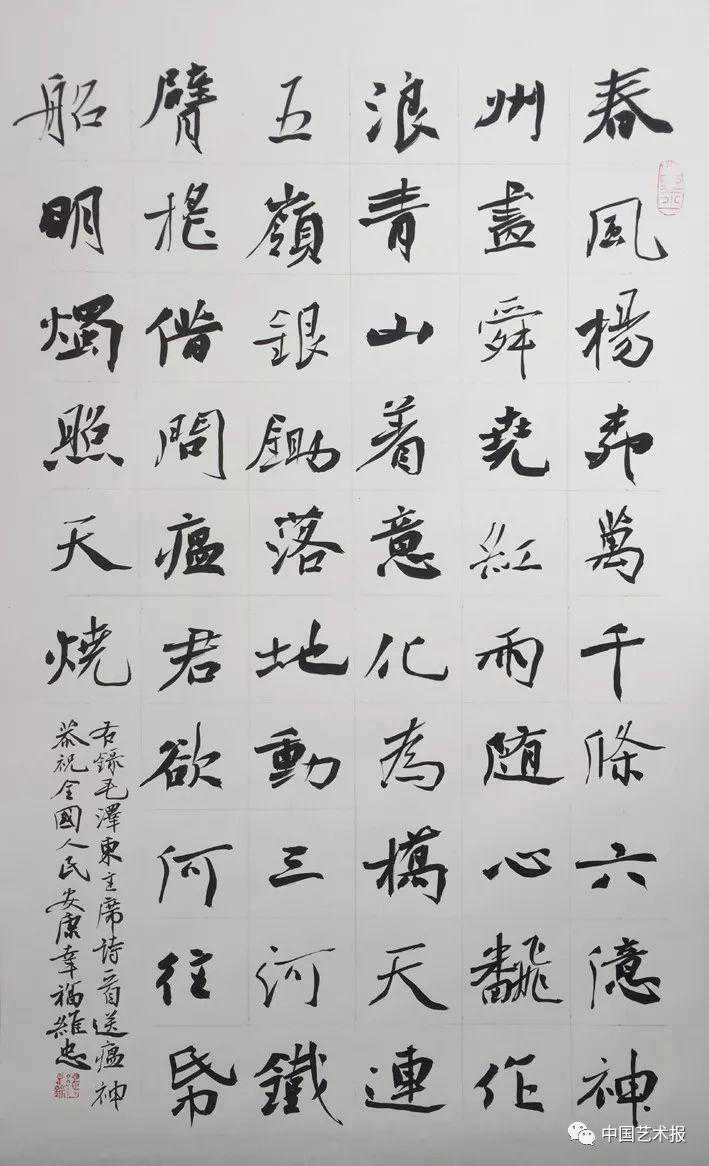 春風楊柳萬千條六億神
州盡舜堯紅雨随心飜作
浪青山着意化為橋天連
五嶺銀鋤落地動三河鐵
臂搖借問瘟君欲何往帋
船明燭照天燒
右錄毛澤東主席詩一首送瘟神
恭祝全國人民安康幸福維忠
中国艺术报